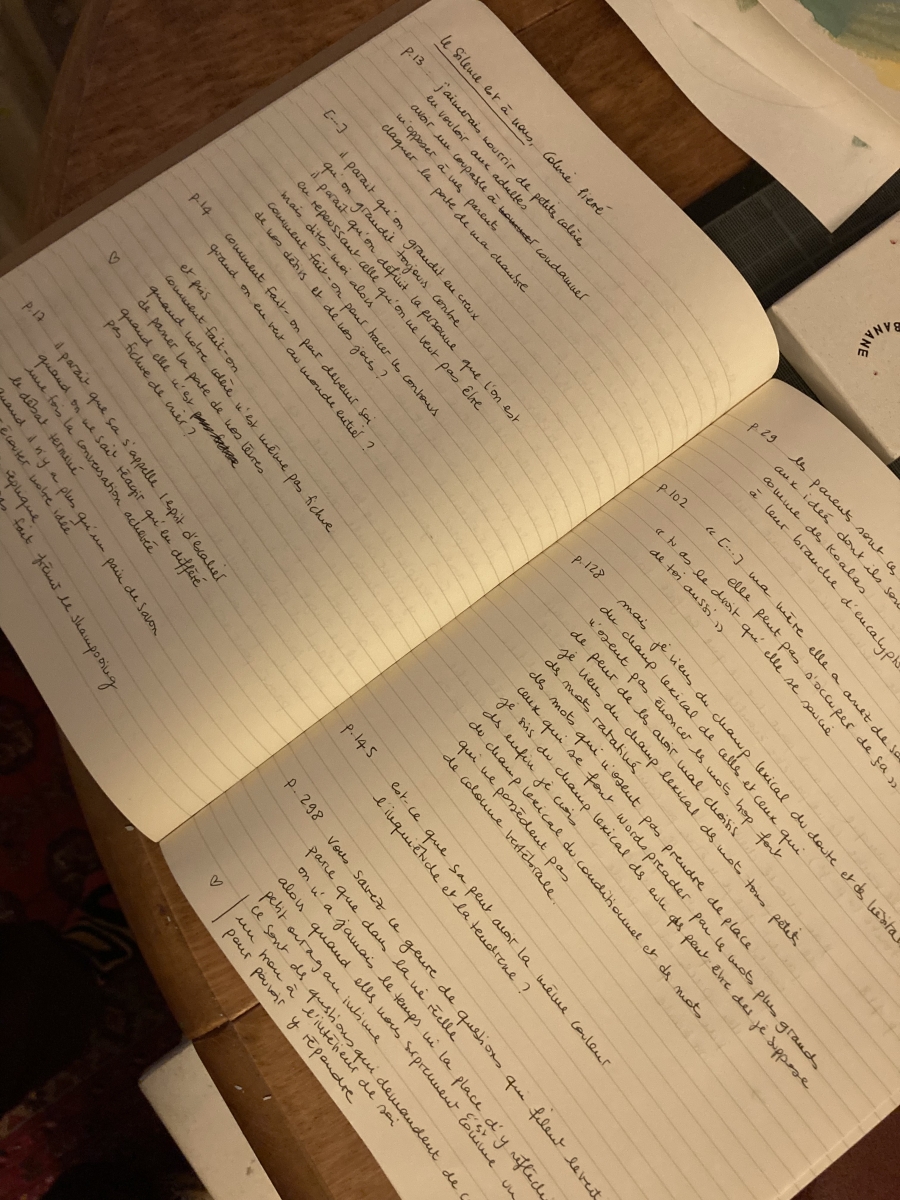 le silence est à nous, Coline Pierré
p.13 = j'aimerais nourrir de petites colères
en vouloir aux adultes
avoir un coupable à condamner
m'opposer à mes parents
claquer la porte de ma chambre
[...]
il paraît qu'on grandit en creux
qu'on grandit toujours contre
il paraît qu'on définit la personne que l'on est
en repoussant celle qu'on ne veut pas être
mais dites-moi alors
comment fait-on pour tracer les contours
de nos dénis et de nos joies ?
p.14
comment fait-on pour devenir soi
quand on en veut au monde entier ?
♡
et puis
comment fait-on
quand notre colère n'est même pas fichue
de passer la porte de nos lèvres
quand elle n'est
pas fichue de crier ?
p.17
il paraît que ça s'appelle l'esprit d'escalier
quand on ne sait réagir qu'en différé
une fois la conversation achevée
le débat terminé
quand il n'y a plus qu'un pain de savon
écouter notre idée
réplique
fait frémir le shampooing
p.29
les parents sont
aux idées dont ils sont
comme des koalas
à leur branche d'eucalyptus
p.102
« [...] ma mère elle a arrêté de
elle peut pas s'occuper de ça »
« t'as le droit qu'elle se soucie
de toi aussi »
p.128
mais je viens du champ lexical du doute et des
du champ lexical de celles et ceux qui
n'osent pas énoncer les mots trop fort
de peur de les avoir mal choisis
je viens du champ lexical des mots tous petits
des mots ratatinés
des mots qui n'osent pas prendre de place
ceux qui se font wordspreader par les mots plus grands
je suis du champ lexical des euh des peut-être des je suppose
des enfin je crois
du champ lexical du conditionnel et des mots
qui ne possèdent pas
de colonne vertébrale.
p.145
est-ce que ça peut avoir la même couleur
l'inquiétude et la tendresse ?
p.298
vous savez ce genre de questions qui filent le
parce que dans la vie réelle
on n'a jamais le temps ni la place d'y réfléchir
alors quand elles nous surprennent comme un
petit ouragan intime
ce sont des questions qui demandent de
♡
un trou à l'intérieur de soi
pour pouvoir y répondre
BANANE